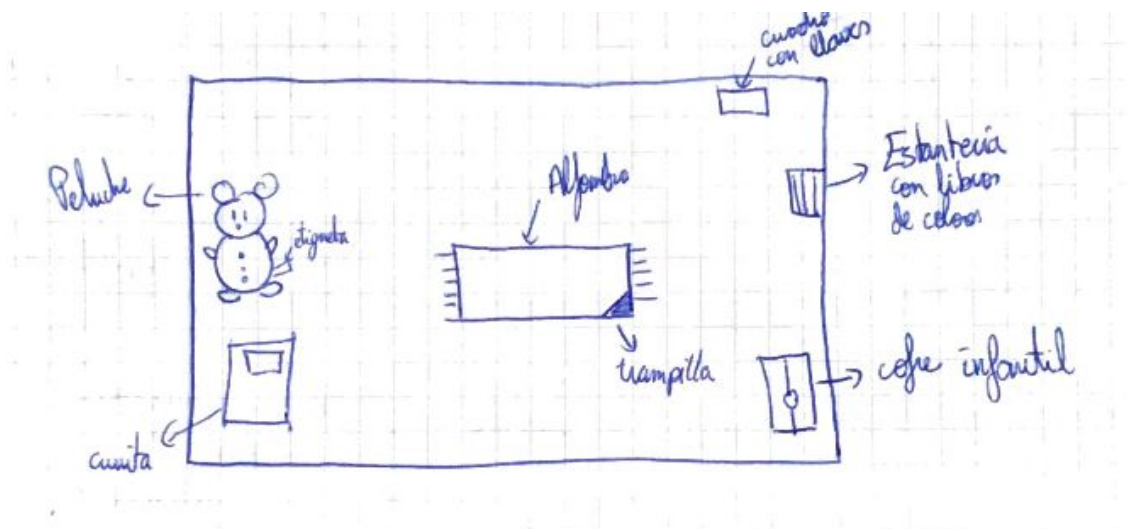 cuadro
con llaves
Peluche
etiqueta
Alfombra
Estantería
con libros
de colores
trampilla
cofre infantil
cunita